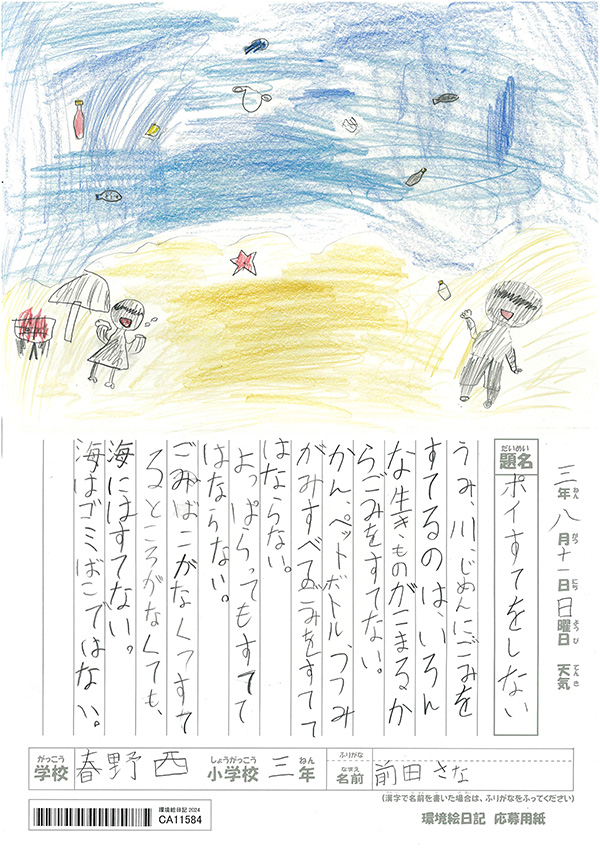 三年八月十一日日曜日 天気
ねん がつ にち ようび てんき
だいめい
題名 ポイすてをしない
うみ、川、じめんにごみを
すてるのは、いろん
な生きものがこまるか
らごみをすてない。
かん、ペットボトル、つつみ
がみすべてごみをすてて
はならない。
よっぱらってもすてて
はならない。
ごみばこがなくてすて
るところがなくても、
海にはすてない。
海はゴミばこではない。
がっこう しょうがっこう ねん
学校 春野西 小学校 三年
ふりがな
なまえ
名前 前田 さな
(漢字で名前を書いた場合は、ふりがなをふってください)
環境絵日記 2024
CA11584
環境絵日記 応募用紙